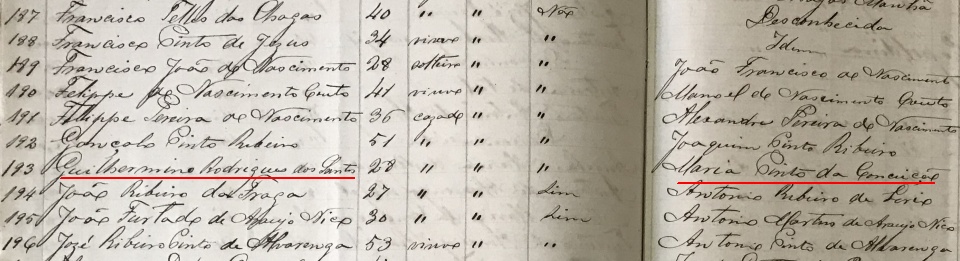 187 Francisco Telles das Chagas 40 " " Nox
Desconhecida
188 Francisco Pinto de Jesus 34 viuvo " "
Idem
189 Francisco João do Nascimento 28 solteiro " "
João Francisco de Nascimento
190 Felippe de Nascimento 41 viuvo "
Manoel de Nascimento
191 Felippe Pereira de Nascimento 36 casado "
Alexandre Pereira de Nascimento
192 Gonçalo Pinto Ribeiro 51 " "
Joaquim Pinto Ribeiro
193 Guilhermino Rodrigues dos Santos 28 " " "
Maria Pinto da Conceição
194 João Ribeiro da Fraga 27 " " Sim
Antonio Ribeiro de
195 João Furtado de Araujo 30 " " Sim
Antonio Martins de Araujo
196 José Ribeiro Pinto de Alvarenga 53 viuvo " "
Antonio Pinto de Alvarenga